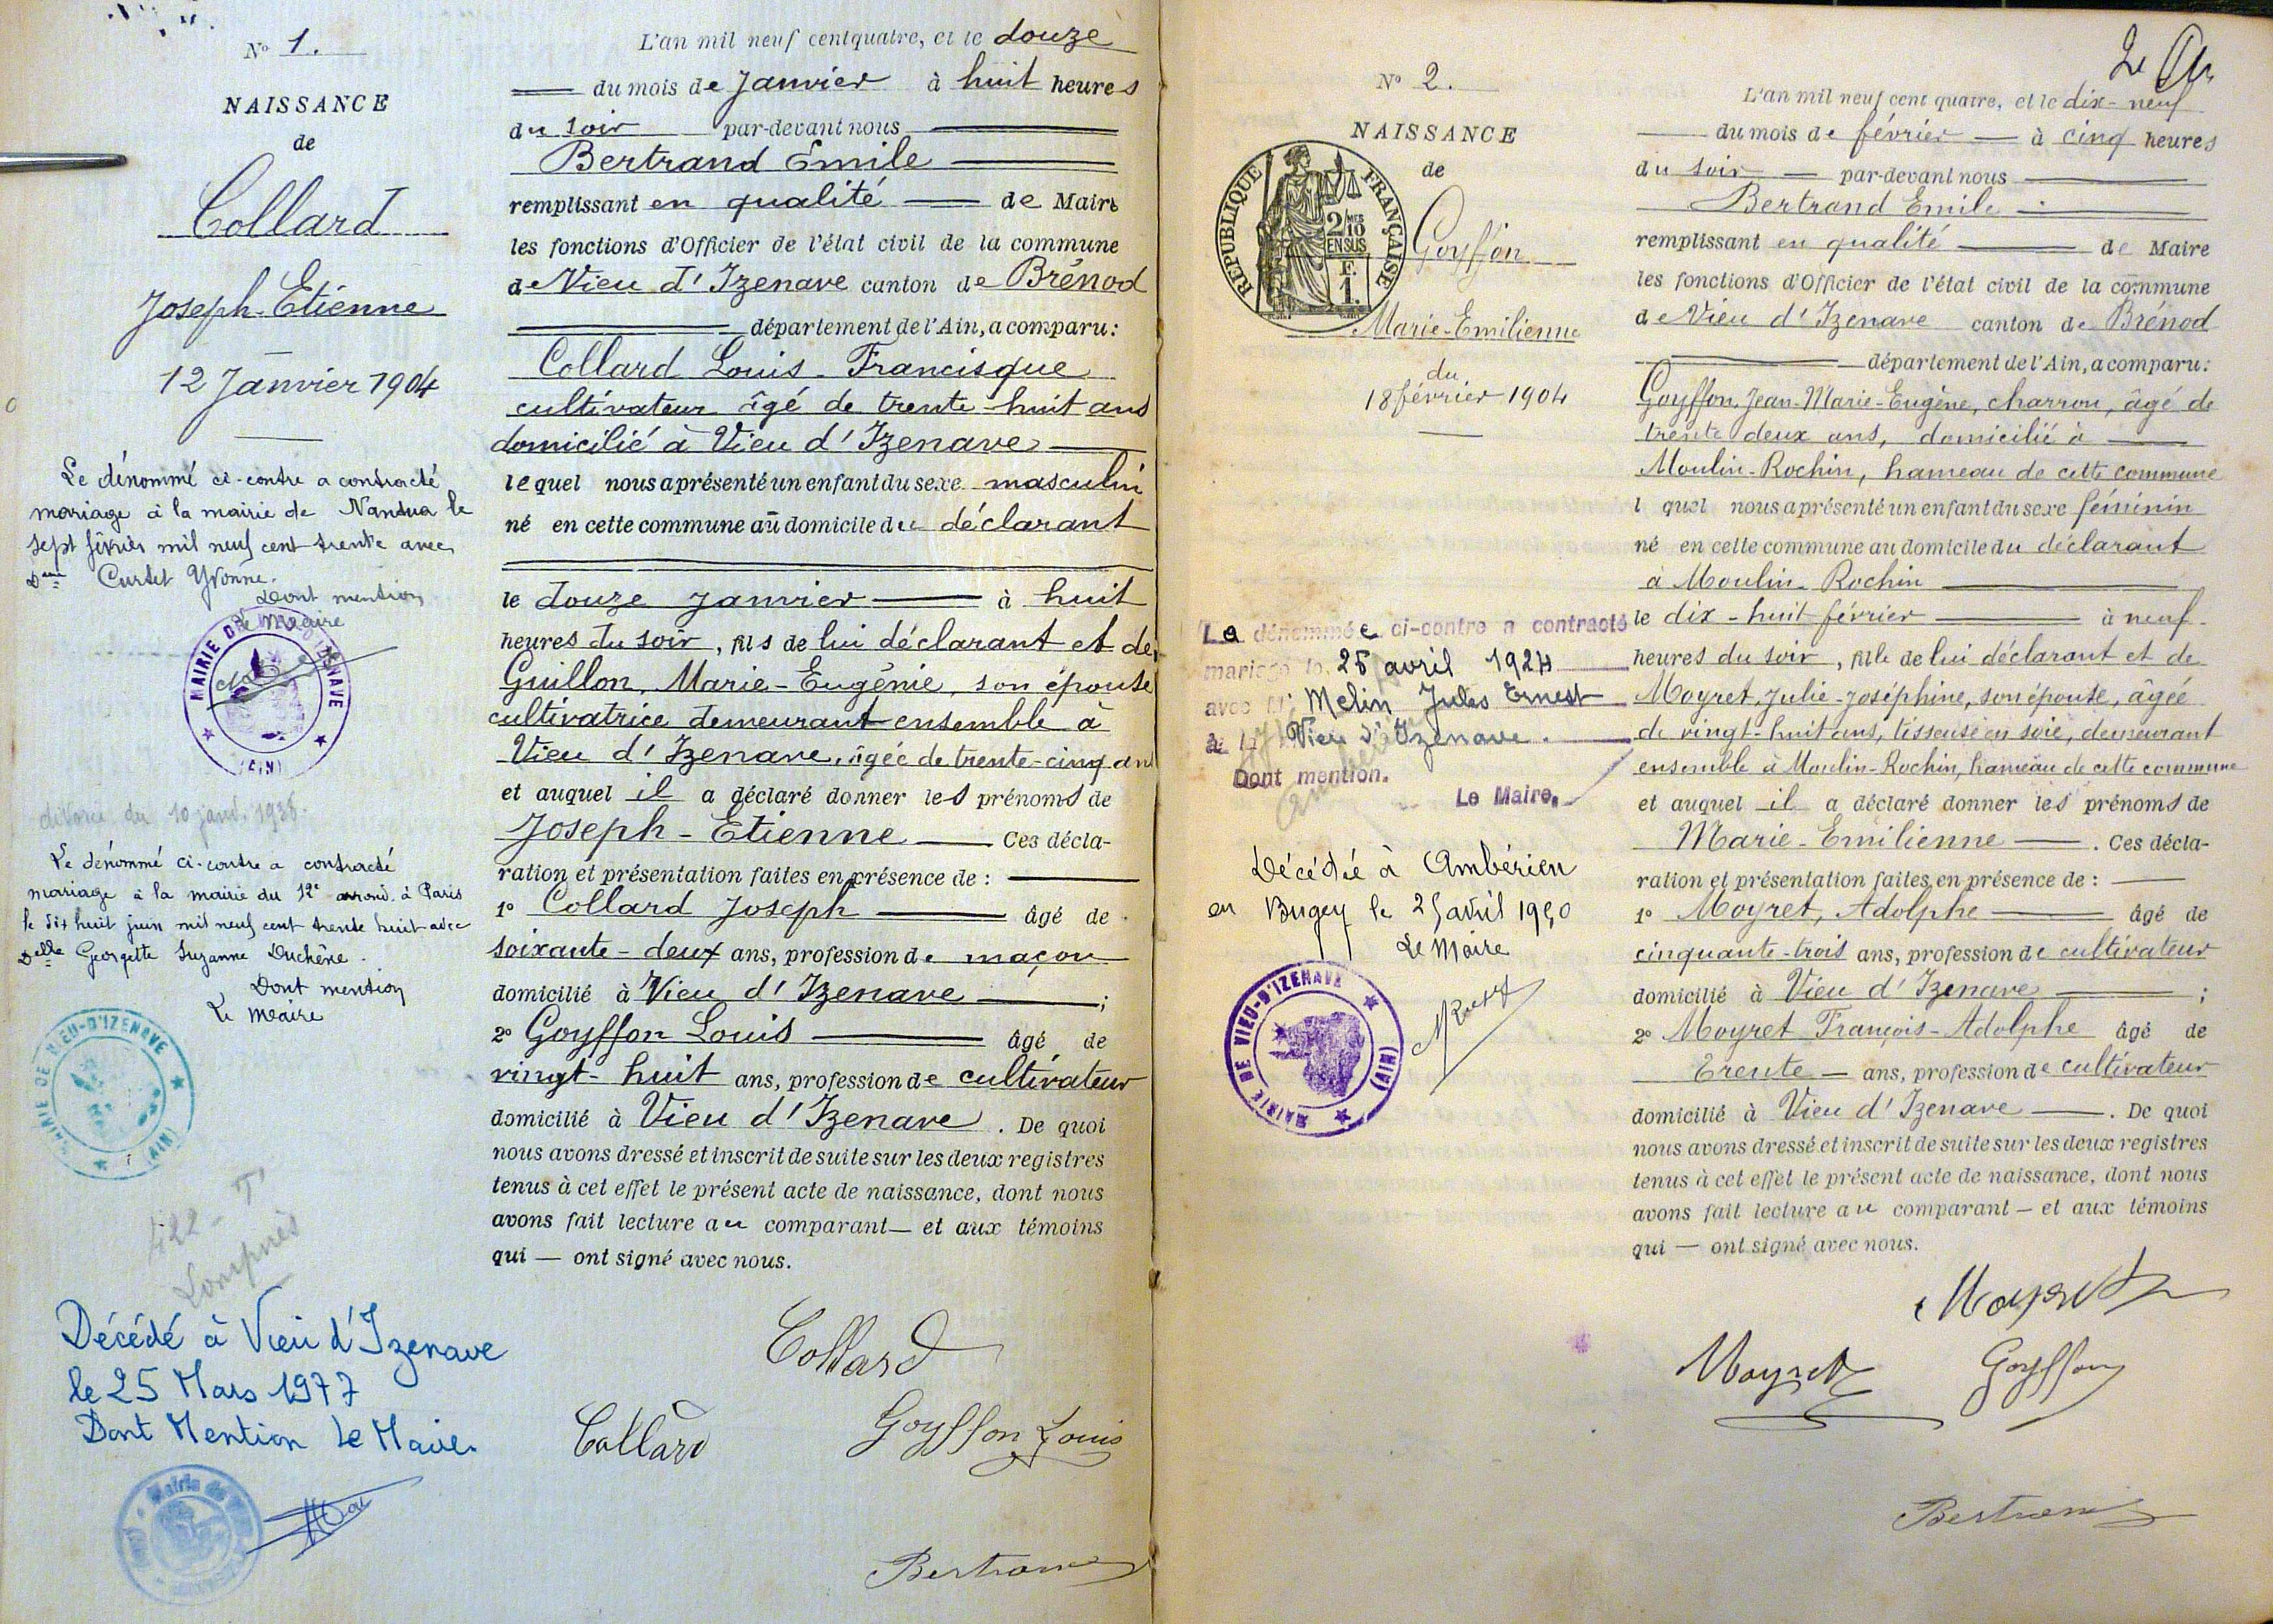 N° 1.
NAISSANCE
de
Collard
Joseph-Etienne
12 Janvier 1904
Le dénommé ci-contre a contracté
mariage à la mairie de Nantua le
sept février mil neuf cent trente avec
Dme Curtet Yvonne.
Dont mention
Le Maire
divorcé du 10 janv. 1938.
Le dénommé ci-contre a contracté
mariage à la mairie du 12e arrond. à Paris
le dix huit juin mil neuf cent trente huit avec
Delle Georgette Suzanne Duchêne.
Dont mention
Le Maire
MAIRIE DE VIEU-D'IZENAVE
(AIN)
Lompnès
Décédé à Vieu d'Izenave
le 25 Mars 1977
Dont Mention Le Maire
L'an mil neuf cent quatre, et le douze
du mois de Janvier à huit heures
du soir par-devant nous
Bertrand Emile
remplissant en qualité de Maire
les fonctions d'Officier de l'état civil de la commune
de Vieu d'Izenave canton de Brénod
département de l'Ain, a comparu:
Collard Louis-Francisque
cultivateur âgé de trente-huit ans
domicilié à Vieu d'Izenave
lequel nous a présenté un enfant du sexe masculin
né en cette commune au domicile du déclarant
le douze Janvier à huit
heures du soir, fils de lui déclarant et de
Guillon, Marie-Eugénie, son épouse
cultivatrice demeurant ensemble à
Vieu d'Izenave, âgée de trente-cinq ans
et auquel il a déclaré donner les prénoms de
Joseph-Etienne Ces décla-
ration et présentation faites en présence de:
1° Collard Joseph âgé de
soixante-deux ans, profession de maçon
domicilié à Vieu d'Izenave ;
2° Goyffon Louis âgé de
vingt-huit ans, profession de cultivateur
domicilié à Vieu d'Izenave. De quoi
nous avons dressé et inscrit de suite sur les deux registres
tenus à cet effet le présent acte de naissance, dont nous
avons fait lecture au comparant — et aux témoins
qui — ont signé avec nous.
Collard
Collard
Goyffon Louis
Bertrand
N° 2.
NAISSANCE
de
REPUBLIQUE FRANÇAISE
2/10
EN SUS
F.
1.
Goyffon
Marie-Emilienne
du
18 février 1904
La dénommée ci-contre a contracté
mariage le 26 avril 1924
avec M. Melin Jules Ernest
à Vieu d'Izenave.
Dont mention.
Le Maire,
Décédée à Ambérieu
en Bugey le 25 avril 1990
Le Maire
MAIRIE DE VIEU-D'IZENAVE
(AIN)
L'an mil neuf cent quatre, et le dix-neuf
du mois de février à cinq heures
du soir par-devant nous
Bertrand Emile
remplissant en qualité de Maire
les fonctions d'Officier de l'état civil de la commune
de Vieu d'Izenave canton de Brénod
département de l'Ain, a comparu:
Goyffon, Jean-Marie-Eugène, charron, âgé de
trente deux ans, domicilié à
Moulin-Rochin, hameau de cette commune
l quel nous a présenté un enfant du sexe féminin
né en cette commune au domicile du déclarant
à Moulin-Rochin
le dix-huit février à neuf
heures du soir, fille de lui déclarant et de
Moyret, Julie-Joséphine, son épouse, âgée
de vingt-huit ans, tisseuse en soie, demeurant
ensemble à Moulin-Rochin, hameau de cette commune
et auquel il a déclaré donner les prénoms de
Marie-Emilienne. Ces décla-
ration et présentation faites en présence de:
1° Moyret, Adolphe âgé de
cinquante-trois ans, profession de cultivateur
domicilié à Vieu d'Izenave ;
2° Moyret François-Adolphe âgé de
Trente ans, profession de cultivateur
domicilié à Vieu d'Izenave. De quoi
nous avons dressé et inscrit de suite sur les deux registres
tenus à cet effet le présent acte de naissance, dont nous
avons fait lecture au comparant — et aux témoins
qui — ont signé avec nous.
Moyret
Moyret
Goyffon
Bertrand